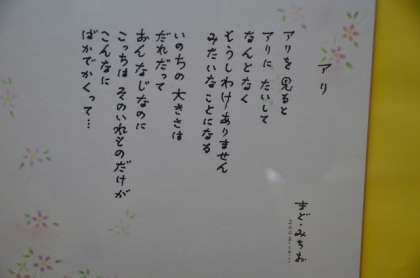 アリ
アリを見ると
アリに たいして
なんとなく
もうしわけありません
みたいなことになる
いのちの 大きさは
だれだって
おんなじなのに
こっちは そのいれもののだけが
こんなに
ばかでかくって…
まど・みちお